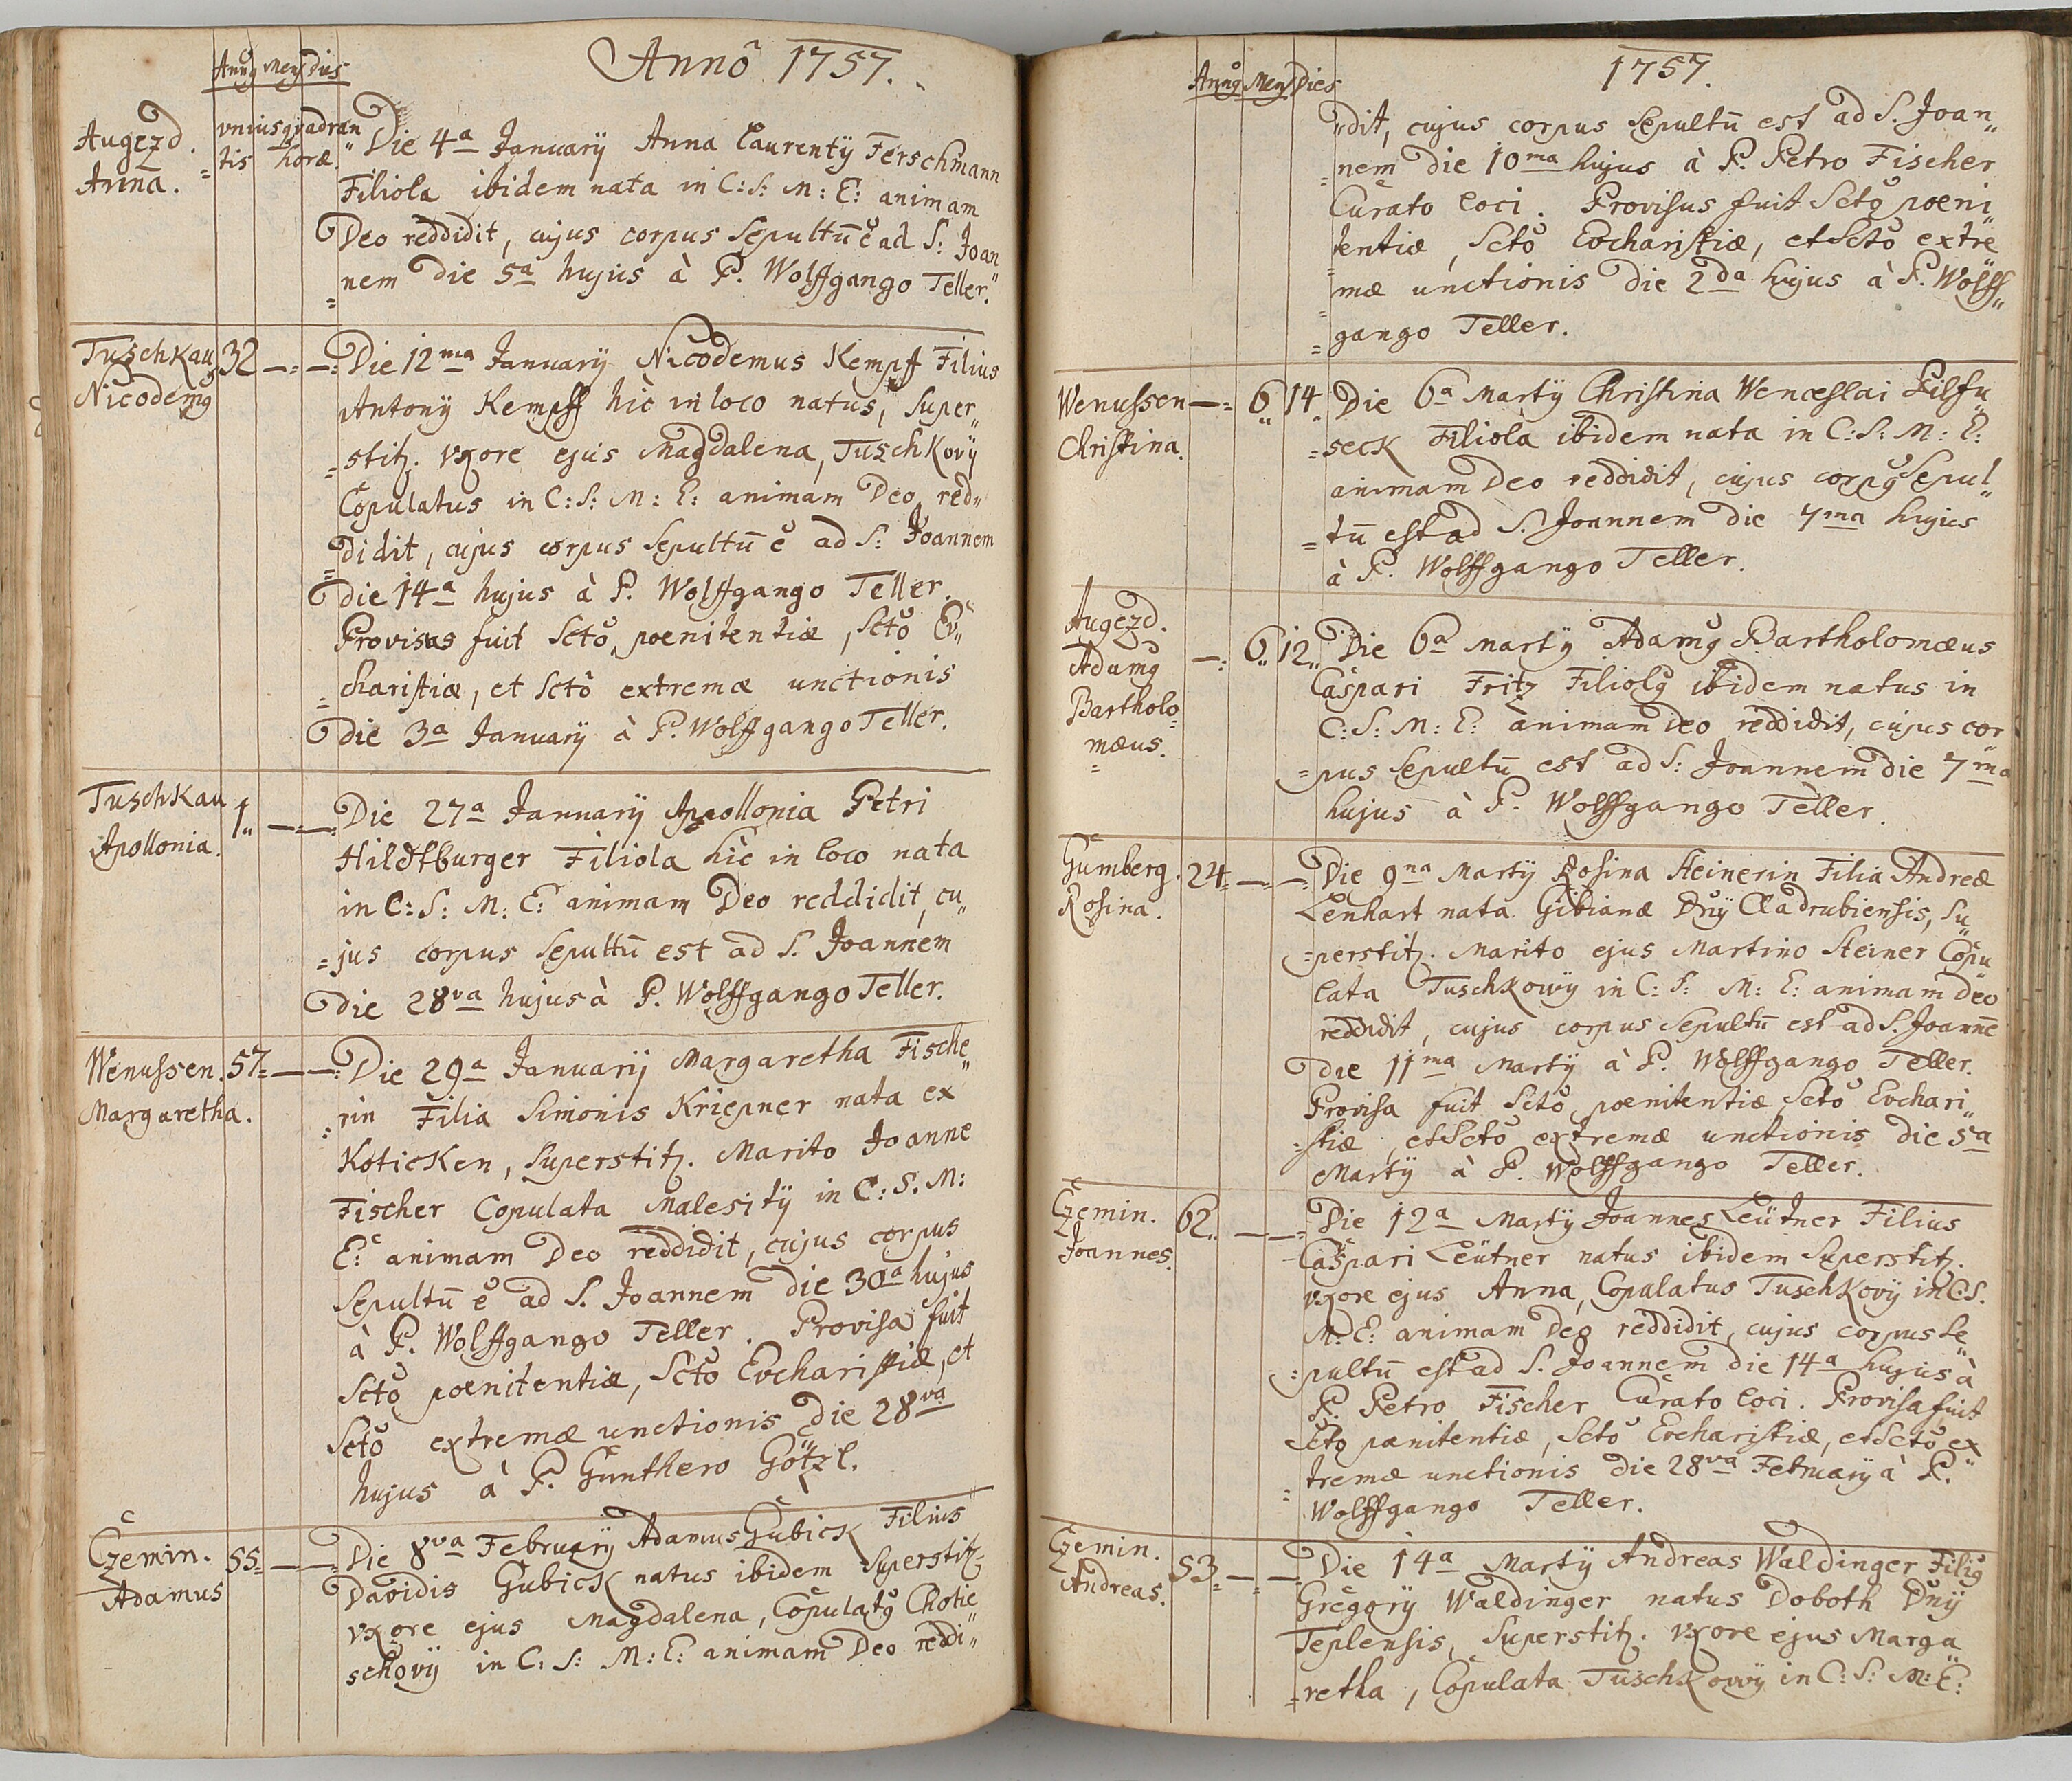 Annô 1757.
Anng Mens Dies
Augezd.
Anna.
unius quadran
tis horæ
Die 4a January Anna Laurentÿ Ferschmann
Filiola ibidem nata in C: S: M: E: animam
Deo reddidit, cujus corpus sepultū ē ad S: Joan
nem die 5a hujus à P. Wolffgango Teller.
Tuschkau
Nicodemg
32
Die 12ma January Nicodemus Kempff Filius
Antonÿ Kempff hic in loco natus, super„
stitz. vxore ejus Magdalena, Tuschkovÿ
Copulatus in C: S: M: E: animam Deo red„
didit, cujus corpus sepultū ē ad S: Joannem
die 14a hujus à P. Wolffgango Teller.
Provisus fuit Scto poenitentiæ, Scto Ev„
charistiæ, et Scto extremæ unctionis
die 3a January à P. Wolffgango Teller.
Tuschkau
Apollonia.
1„
Die 27a January Apollonia Petri
Hildtburger Filiola hic in loco nata
in C: S: M: E: animam Deo reddidit, cu„
jus corpus sepultū est ad S. Joannem
die 28va hujus à P. Wolffgango Teller.
Wenussen.
Margaretha.
57
Die 29a January Margaretha Fische„
rin Filia Simonis Kriepner nata ex
Koticken, superstitz. Marito Joanne
Fischer Copulata Malesitÿ in C: S. M:
E: animam Deo reddidit, cujus corpus
sepultū ē ad S. Joannem die 30a hujus
à P. Wolffgango Teller. Provisa fuit
Scto poenitentiæ, Scto Evcharistiæ, et
Scto extremæ unctionis die 28va
hujus à P. Gunthero Götzl.
Czemin.
Adamus
55
Die 8va February Adamus Gubick Filius
Davidis Gubick natus ibidem superstitz
vxore ejus Magdalena, Copulatg Chotie
schovÿ in C: S: M: E: animam Deo reddi„
1757.
Anng Mens Dies
„dit, cujus corpus sepultū est ad S. Joan„
nem die 10ma hujus à P. Petro Fischer
Curato loci. Provisus fuit Scto poeni„
tentiæ, Scto Evcharistiæ, et Scto extre„
mæ unctionis die 2da hujus à P. Wolff„
gango Teller.
Wenussen
Christina.
6 14
Die 6a Martÿ Christina Wenceslai Pilsu„
seck Filiola ibidem nata in C: S: M: E:
animam Deo reddidit, cujus corpg sepul„
tū est ad S. Joannem die 7ma hujus
à P. Wolffgango Teller.
Augezd.
Adamg
Bartholo
mæus.
6 12
Die 6a Martÿ Adamg Bartholomæus
Caspari Fritz Filiolg ibidem natus in
C: S: M: E: animam Deo reddidit, cujus cor
pus sepultū est ad S: Joannem die 7ma
hujus à P. Wolffgango Teller.
Gumberg.
Rosina.
24
Die 9na Martÿ Rosina Steinerin Filia Andreæ
Lenhart nata Gibianæ Dnÿ Cladrubiensis, su„
perstitz. Marito ejus Martino Steiner Copu„
lata Tuschkowÿ in C: S: M: E: animam Deo
reddidit, cujus corpus sepultū est ad S. Joannē
die 11ma Martÿ à P. Wolffgango Teller.
Provisa fuit Scto poenitentiæ Scto Evchari„
stiæ, et Scto extremæ unctionis die 5a
Martÿ à P. Wolffgango Teller.
Czemin.
Joannes.
62
Die 12a Martÿ Joannes Leütner Filius
Caspari Leütner natus ibidem superstitz.
vxore ejus Anna, Copulatus Tuschkovÿ in C: S.
M: E: animam Deo reddidit, cujus corpus se„
pultū est ad S. Joannem die 14a hujus à
P. Petro Fischer Curato loci. Provisa fuit
Scto pænitentiæ, Scto Evcharistiæ, et Scto ex„
tremæ unctionis die 28va February à P.
Wolffgango Teller.
Czemin.
Andreas.
53
Die 14a Martÿ Andreas Waldinger Filig
Gregorÿ Waldinger natus Doboth Dnÿ
Teplensis, superstitz. vxore ejus Marga„
retha, Copulata Tuschkowÿ in C: S: M: E: